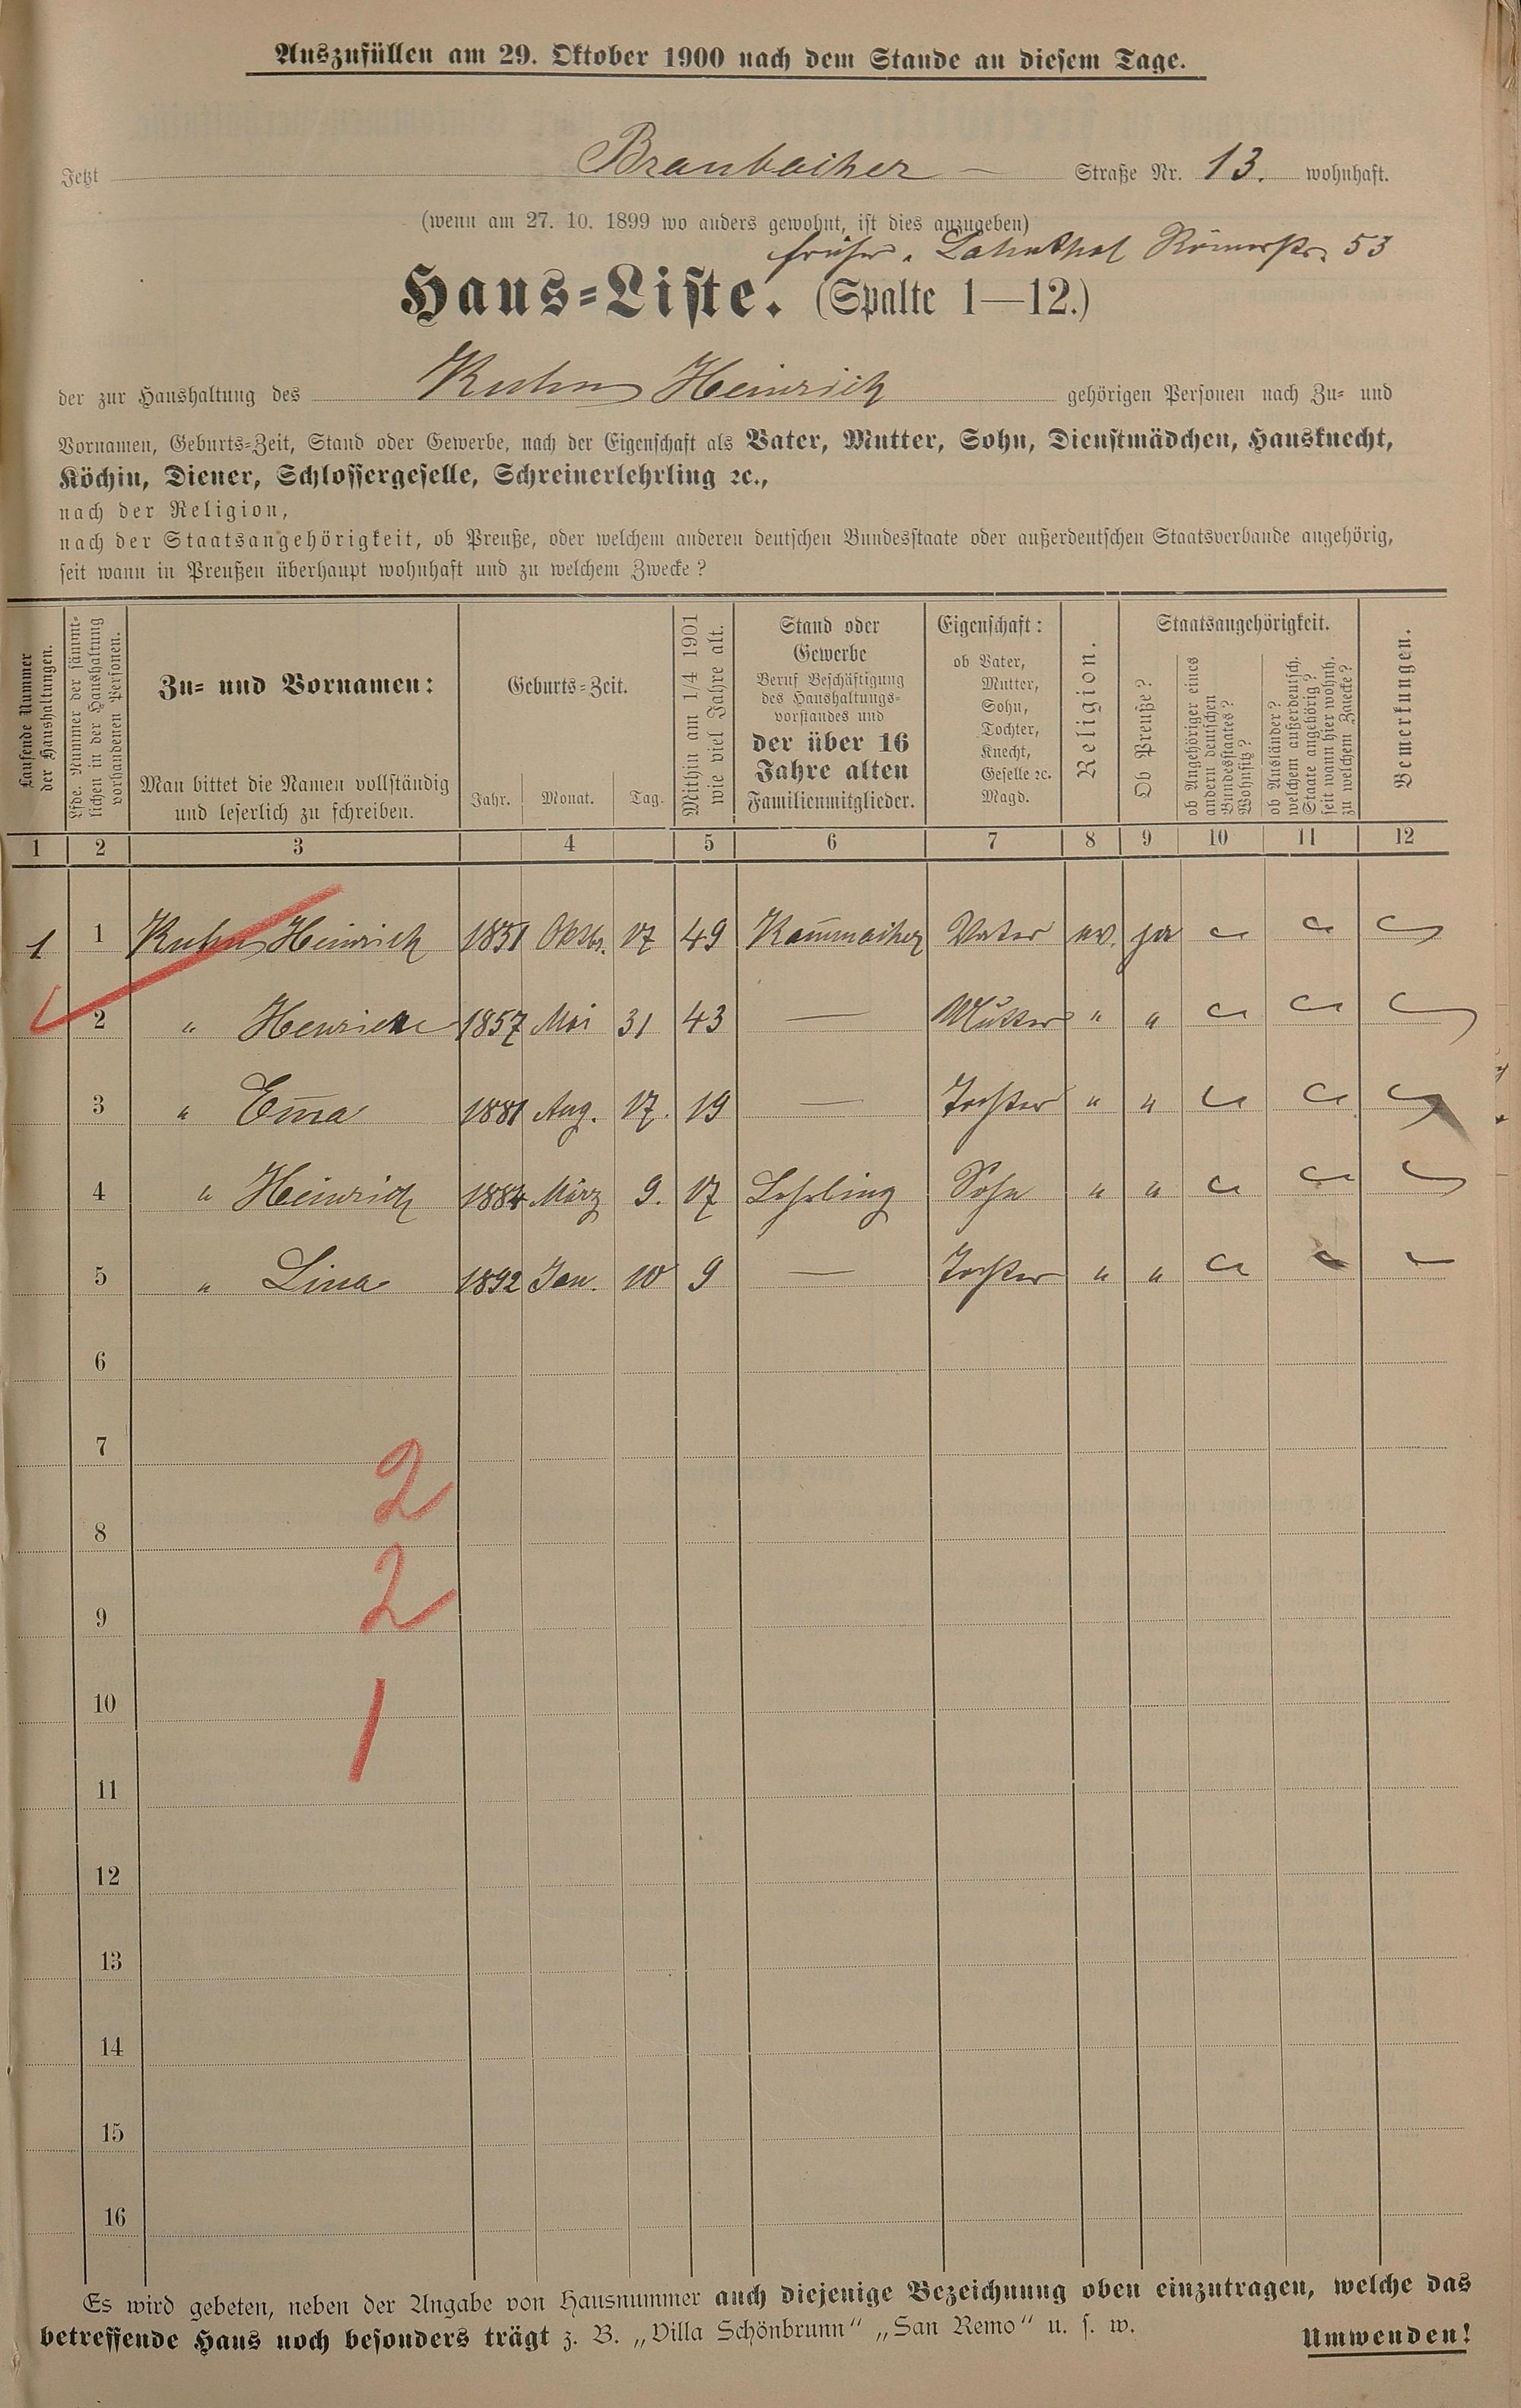 Auszufüllen am 29. Oktober 1900 nach dem Stande an diesem Tage.
Jetzt Braubacher Straße Nr. 13. wohnhaft.
(wenn am 27. 10. 1899 wo anders gewohnt, ist dies anzugeben)
früher. Lahnthal Römerstr. 53
Haus-Liste. (Spalte 1—12.)
der zur Haushaltung des Kuhn Heinrich gehörigen Personen nach Zu- und
Vornamen, Geburts-Zeit, Stand oder Gewerbe, nach der Eigenschaft als Vater, Mutter, Sohn, Dienstmädchen, Hausknecht,
Köchin, Diener, Schlossergeselle, Schreinerlehrling ꝛc.,
nach der Religion,
nach der Staatsangehörigkeit, ob Preuße, oder welchem anderen deutschen Bundesstaate oder außerdeutschen Staatsverbande angehörig,
seit wann in Preußen überhaupt wohnhaft und zu welchem Zwecke?
Laufende Nummer
der Haushaltungen.
Lfde. Nummer der sämmt-
lichen in der Haushaltung
vorhandenen Personen.
Zu- und Vornamen:
Man bittet die Namen vollständig
und leserlich zu schreiben.
Geburts-Zeit.
Jahr. Monat. Tag.
Mithin am 1/4 1901
wie viel Jahre alt.
Stand oder
Gewerbe
Beruf Beschäftigung
des Haushaltungs-
vorstandes und
der über 16
Jahre alten
Familienmitglieder.
Eigenschaft:
ob Vater,
Mutter,
Sohn,
Tochter,
Knecht,
Geselle ꝛc.
Magd.
Religion.
Staatsangehörigkeit.
Ob Preuße?
ob Angehöriger eines
andern deutschen
Bundesstaates?
Wohnsitz?
ob Ausländer?
welchem außerdeutsch.
Staate angehörig?
seit wann hier wohnh.
zu welchem Zwecke?
Bemerkungen.
1 2 3 4 5 6 7 8 9 10 11 12
1 1 Kuhn Heinrich 1851 Oktbr. 17 49 Kam̅macher Vater ev. ja
2 " Henriette 1857 Mai 31 43 — Mutter " "
3 " Em̅a 1881 Aug. 17. 19 — Tochter " "
4 " Heinrich 1884 März 9. 17 Lehrling Sohn " "
5 " Lina 1892 Jan. 10 9 — Tochter " "
6
7
2
8
2
9
10
1
11
12
13
14
15
16
Es wird gebeten, neben der Angabe von Hausnummer auch diejenige Bezeichnung oben einzutragen, welche das
betreffende Haus noch besonders trägt z. B. „Villa Schönbrunn" „San Remo" u. s. w.
Umwenden!